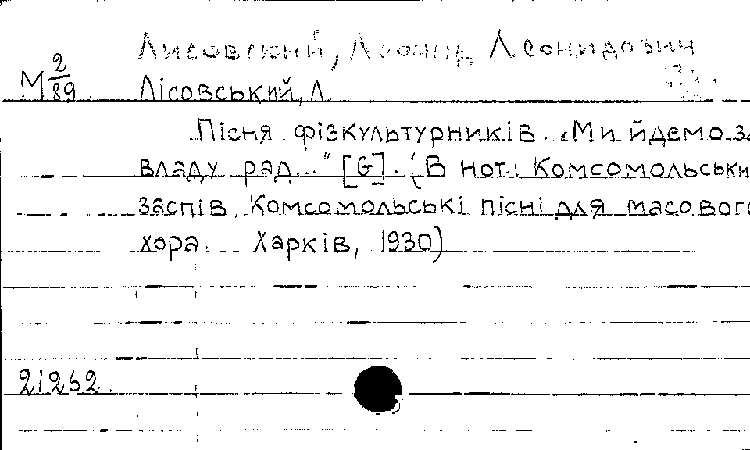 Лисовский, Леонид Леонидович
М 2/89
Лісовський, Л.
Пісня фізкультурників. „Ми йдемо за
владу рад.." [G]. (В нот.: Комсомольськи
заспів. Комсомольські пісні для масового
хора. Харків, 1930)
21262.